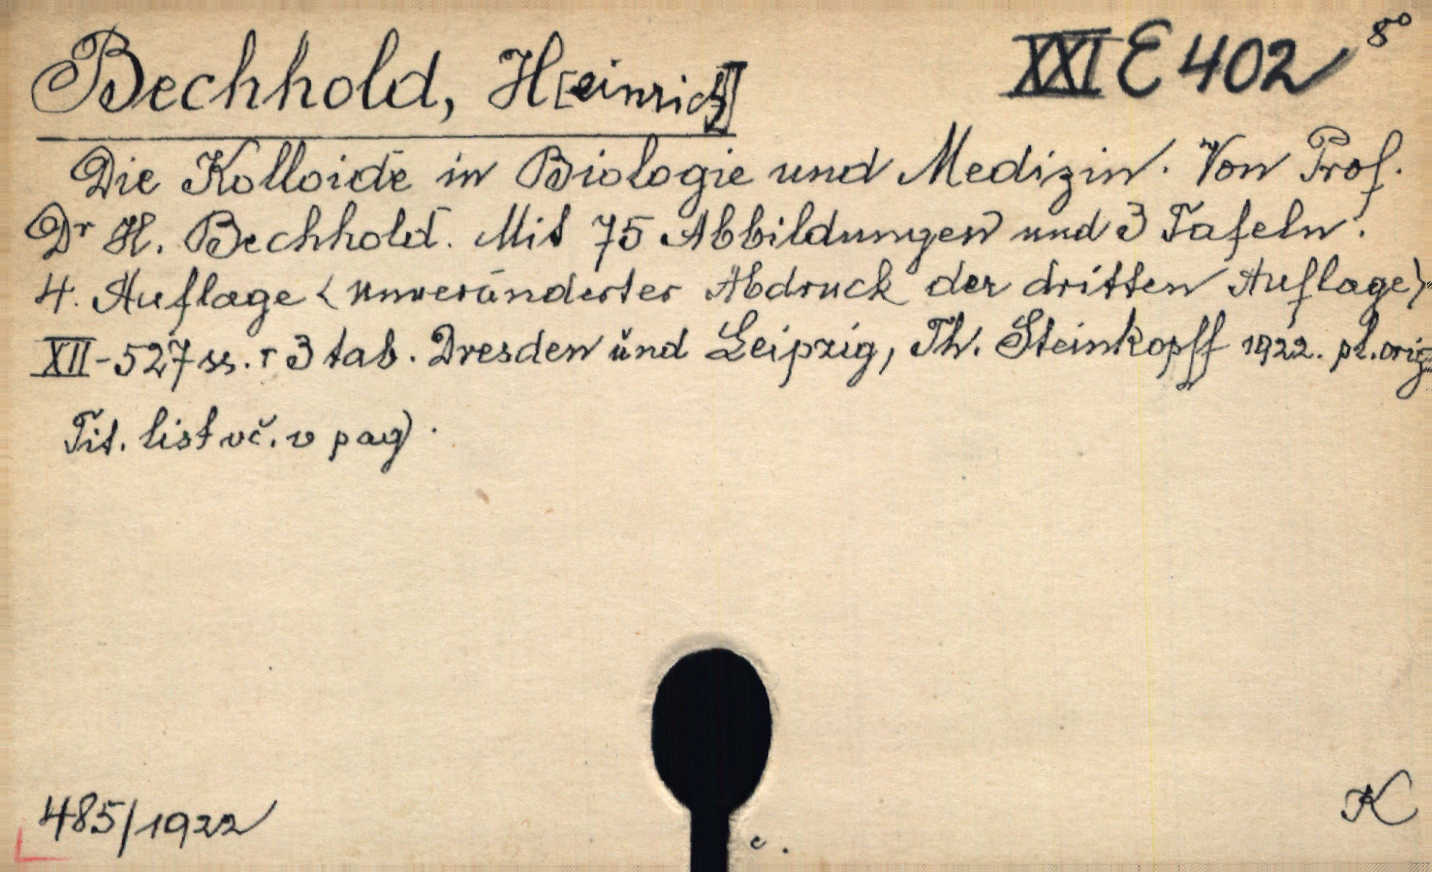 Bechhold, H[einrich] XXI E 402 8°
Die Kolloide in Biologie und Medizin. Von Prof.
Dr H. Bechhold. Mit 75 Abbildungen und 3 Tafeln.
4. Auflage <unveränderter Abdruck der dritten Auflage>
XII-527 ss. + 3 tab. Dresden und Leipzig, Th. Steinkopff 1922. pl. orig
Tit. list vč. v pag).
485/1922 K
c.